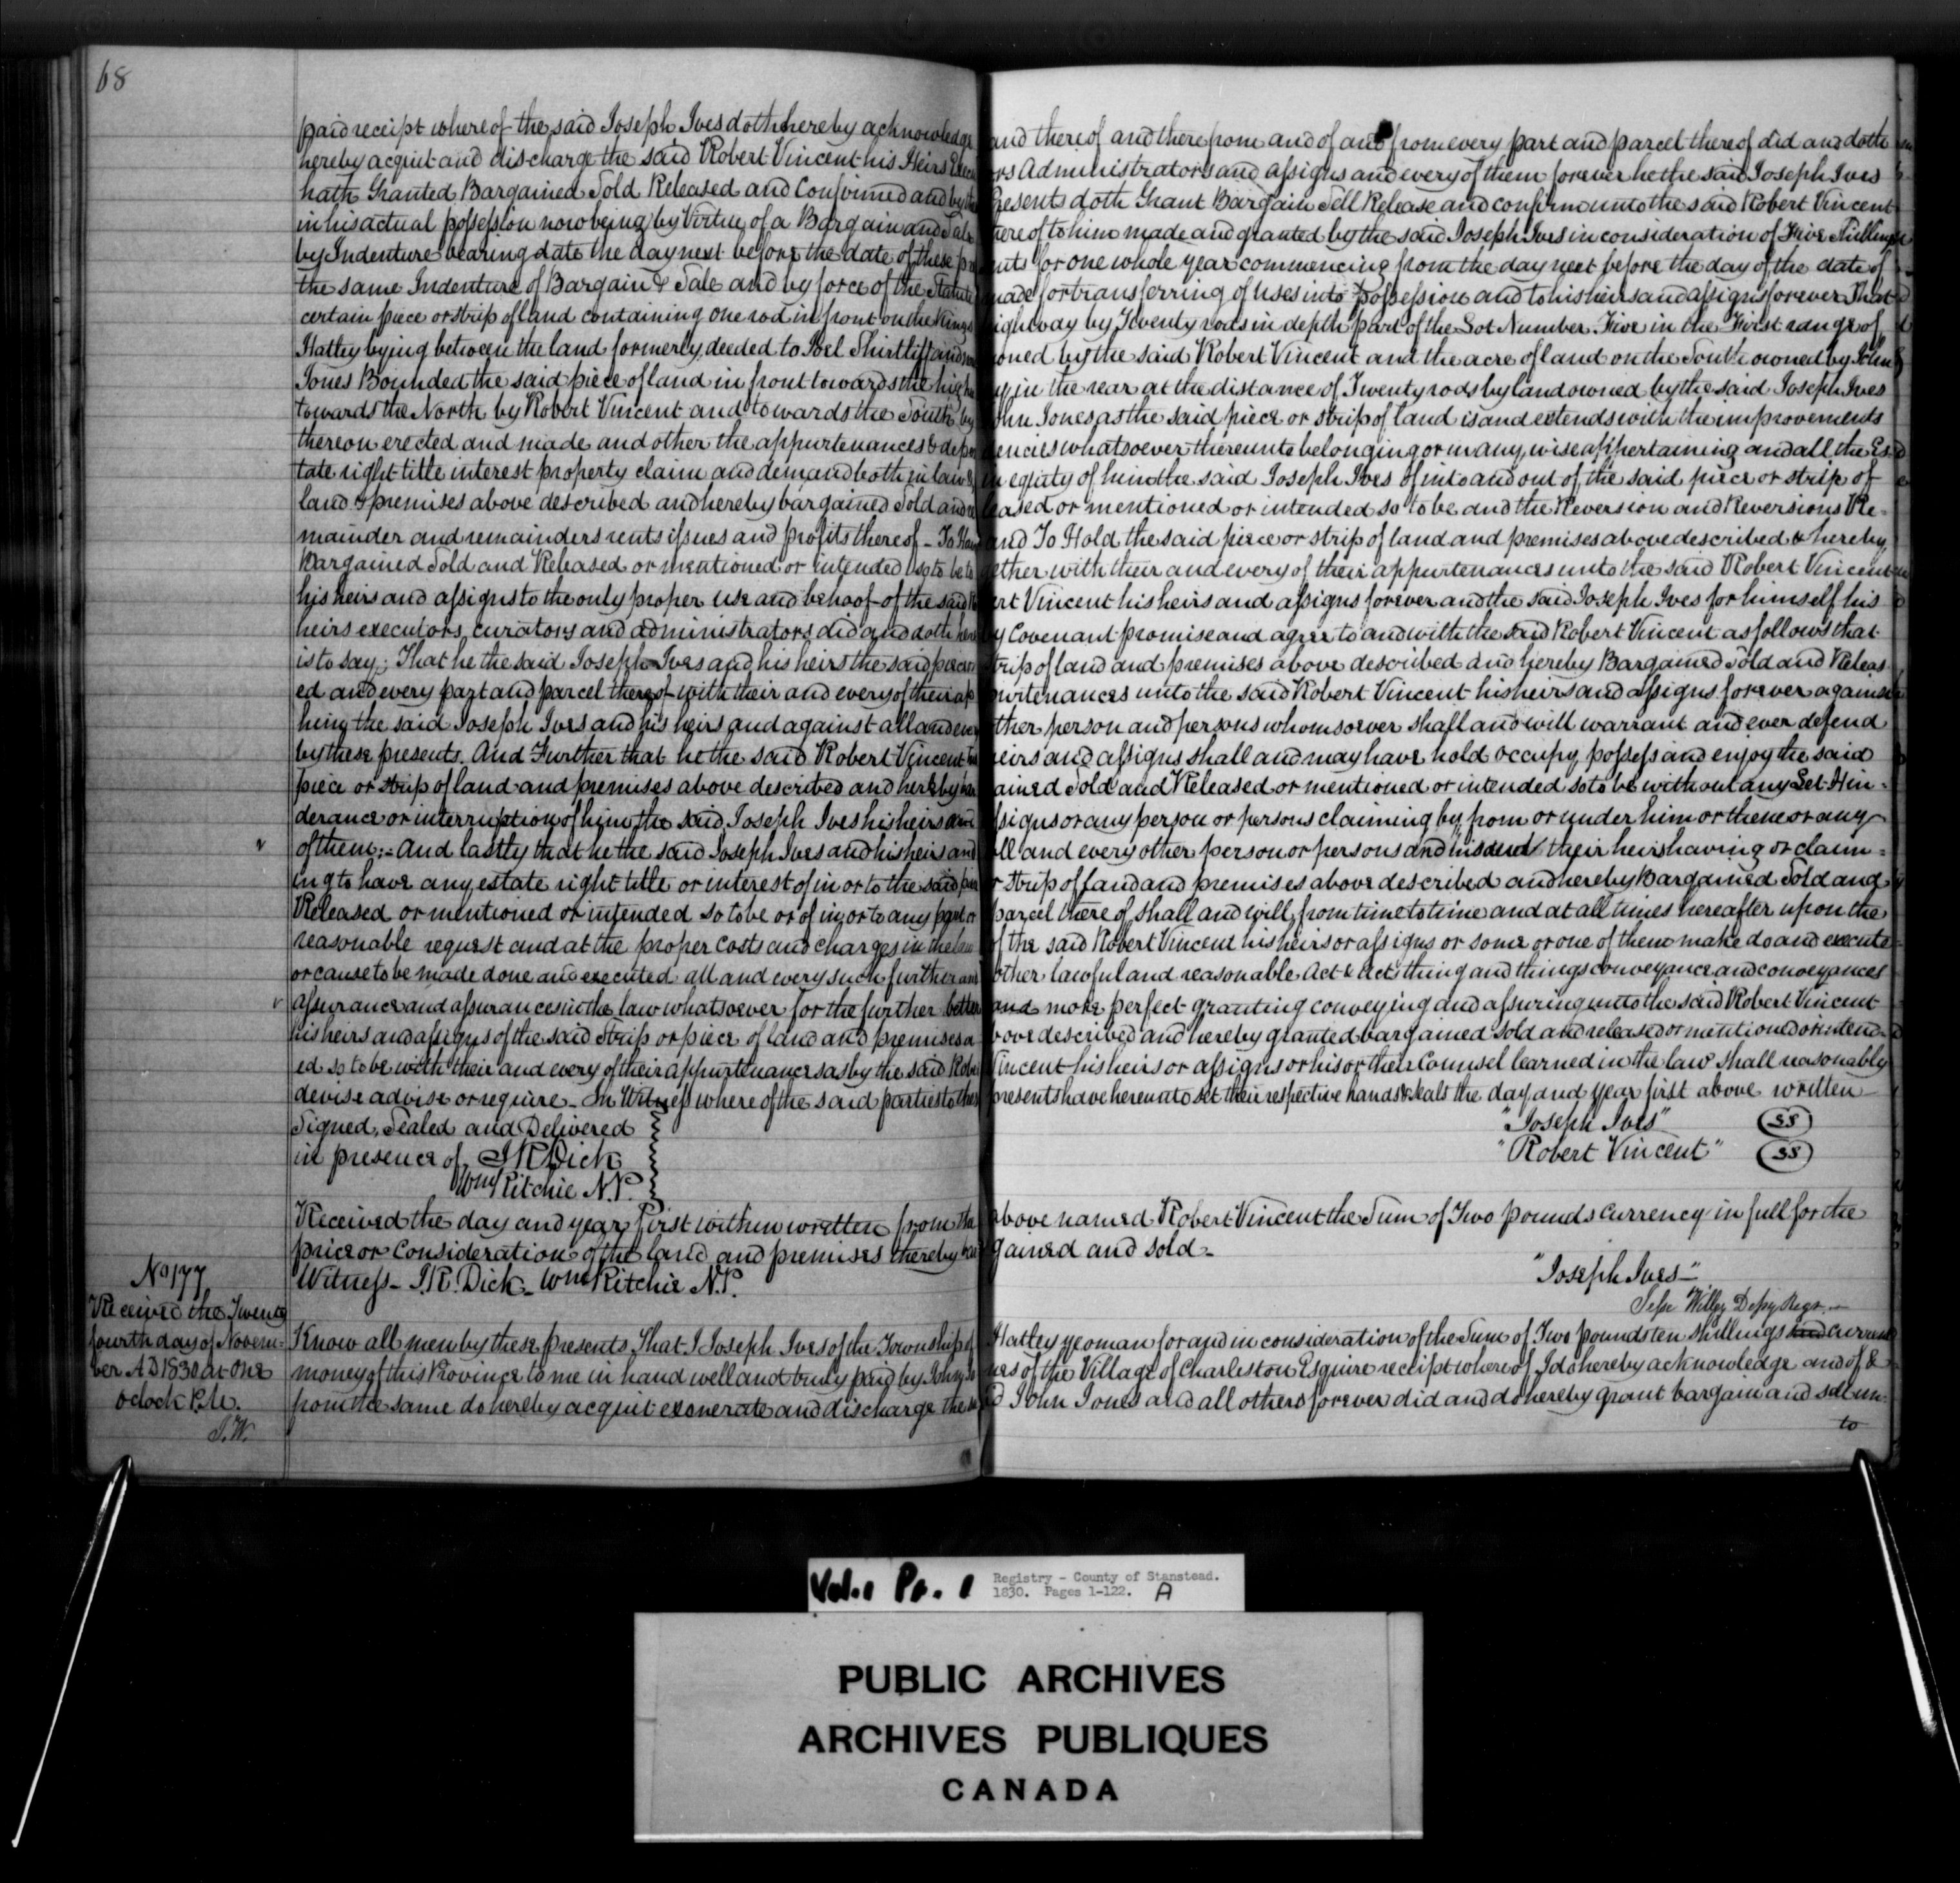 68
paid receipt whereof the said Joseph Ives doth hereby acknowledge and thereof and therefrom and of and from every part and parcel thereof did and doth
hereby acquit and discharge the said Robert Vincent his Heirs Execu ors Administrators and assigns and every of them forever he the said Joseph Ives
hath Granted Bargained Sold Released and Confirmed and by the Presents doth Grant Bargain Sell Release and confirm unto the said Robert Vincent
in his actual possession now being by Virtue of a Bargain and Sale here of to him made and granted by the said Joseph Ives in consideration of Five Shillings
by Indenture bearing date the day next before the date of these pre ents for one whole year commencing from the day next before the day of the date of
the same Indenture of Bargain & Sale and by force of the Statute made for transferring of uses into possession and to his heirs and assigns forever That
certain piece or strip of land containing one rod in front on the Kings ighway by Twenty rods in depth part of the Lot Number Five in the First range of
Hatley lying between the land formerly deeded to Joel Shirtliff and now owned by the said Robert Vincent and the acre of land on the South owned by John
Jones Bounded the said piece of land in front towards the high ay in the rear at the distance of Twenty rods by land owned by the said Joseph Ives
towards the North by Robert Vincent and towards the South by John Jones as the said piece or strip of land is and extends with the improvements
thereon erected and made and other the appurtenances & depen dencies whatsoever thereunto belonging or in any wise appertaining and all the Es-
tate right title interest property claim and demand both in law & in equity of him the said Joseph Ives of into and out of the said piece or strip of
land & premises above described and hereby bargained Sold and re leased or mentioned or intended so to be and the Reversion and Reversions Re-
mainder and remainders rents issues and profits thereof - To Have and To Hold the said piece or strip of land and premises above described & hereby
Bargained Sold and Released or mentioned or intended so to be to gether with their and every of their appurtenances unto the said Robert Vincent
his heirs and assigns to the only proper use and behoof of the said Rob ert Vincent his heirs and assigns forever and the said Joseph Ives for himself his
heirs executors, curators and administrators did and doth here by Covenant promise and agree to and with the said Robert Vincent as follows that
is to say; That he the said Joseph Ives and his heirs the said piece or strip of land and premises above described and hereby Bargained Sold and Releas
ed and every part and parcel thereof with their and every of their ap purtenances unto the said Robert Vincent his heirs and assigns forever against
him the said Joseph Ives and his heirs and against all and every other person and persons whomsoever shall and will warrant and ever defend
by these presents. And Further that he the said Robert Vincent his heirs and assigns shall and may have hold occupy, possess and enjoy the said
piece or strip of land and premises above described and hereby bar ained Sold and Released or mentioned or intended so to be without any Let Hin-
derance or interruption of him the said Joseph Ives his heirs and ssigns or any person or persons claiming by from or under him or them or any
of them:- And lastly that he the said Joseph Ives and his heirs and all and every other person or persons and his and their heirs having or claim-
ing to have any estate right title or interest of in or to the said piece or strip of land and premises above described and hereby Bargained Sold and
Released or mentioned or intended so to be or of in or to any part or parcel there of shall and will from time to time and at all times hereafter upon the
reasonable request and at the proper costs and charges in the law of the said Robert Vincent his heirs or assigns or some or one of them make do and execute
or cause to be made done and executed all and every such further and other lawful and reasonable Act & Acts thing and things conveyance and conveyances
assurance and assurances in the law whatsoever for the further better and more perfect granting conveying and assuring unto the said Robert Vincent
his heirs and assigns of the said strip or piece of land and premises a bove described and hereby granted bargained sold and released or mentioned or intend-
ed so to be with their and every of their appurtenances as by the said Robe Vincent his heirs or assigns or his or their Counsel learned in the law shall reasonably
devise advise or require - In Witness where of the said parties to these presents have hereunto set their respective hands & seals the day and year first above written
Signed, Sealed and Delivered "Joseph Ives" SS
in presence of, J R Dick "Robert Vincent" SS
Wm Ritchie N.P.
Received the day and year first within written from the above named Robert Vincent the Sum of Two pounds currency in full for the
price or Consideration of the land and premises thereby bar gained and sold -
Witness - J.R. Dick - Wm Ritchie N.P. "Joseph Ives"
Jesse Willey Depy Regr
No 177
Received the Twenty
fourth day of Novem-
ber A D 1830 at One
o clock P.M.
J.W.
Know all men by these presents That I Joseph Ives of the Township of Hatley yeoman for and in consideration of the Sum of Two pounds ten shillings and current
money of this Province to me in hand well and truly paid by John Jo nes of the Village of Charleston Esquire receipt where of I do hereby acknowledge and of &
from the same do hereby acquit exonerate and discharge the sai d John Jones and all others forever did and do hereby grant bargain and sell un-
to
Vol.1 Pr. 1 Registry - County of Stanstead.
1830. Pages 1-122. A
PUBLIC ARCHIVES
ARCHIVES PUBLIQUES
CANADA